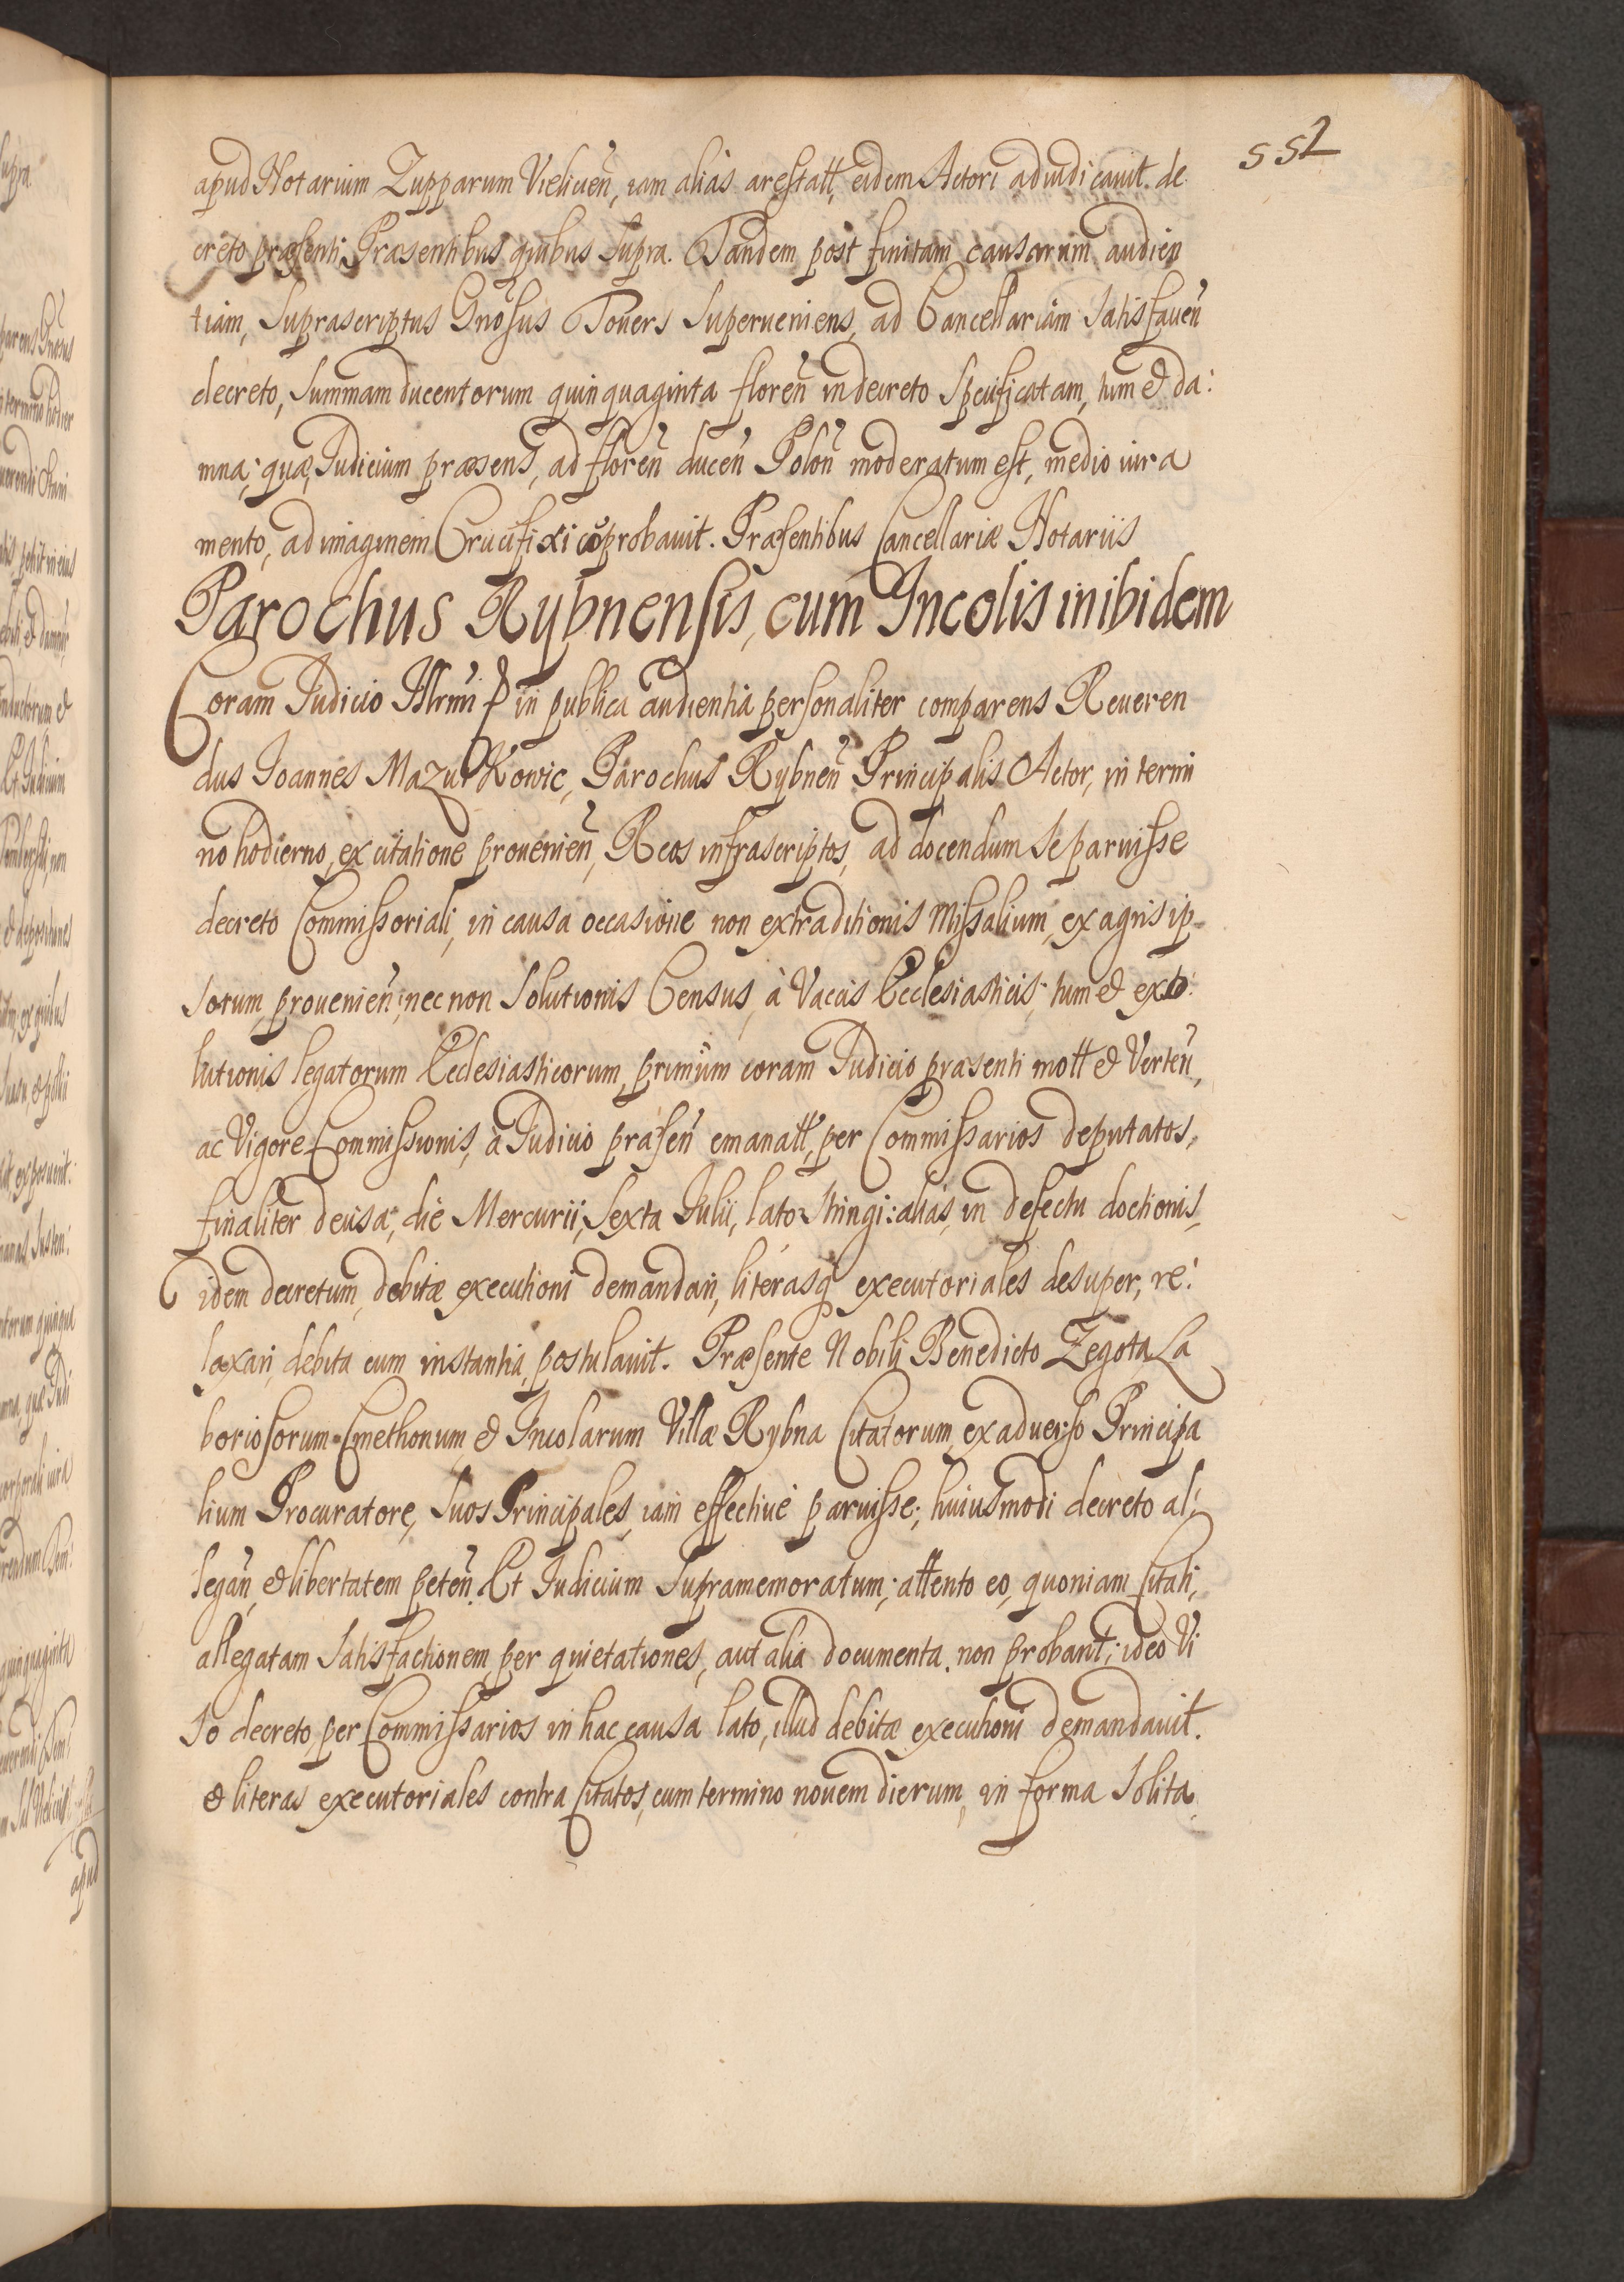 552
apud Notarium Zupparum Vielicen̄, iam alias arestatt, eidem Actori adiudicauit. de
creto præsenti; Præsentibus quibus supra. Tandem post finitam causarum audien
tiam, Suprascriptus Gnosus Touers Superueniens, ad Cancellariam Satisfacen̄
decreto, Summam ducentorum quinquaginta floren̄ in decreto Specificatam, tum & da:
mna; quæ Iudicium præsens, ad floren̄ ducen̄ Polon̄ moderatum est, medio iura
mento, ad imaginem Crucifixi cōprobauit. Præsentibus Cancellariæ Notariis
Parochus Rybnensis, cum Incolis inibidem
Coram Iudicio Illrmi in publica audientia personaliter comparens Reueren
dus Ioannes Mazurkowic, Parochus Rybnen̄ Principalis Actor, in termi
no hodierno, ex citatione prouenien̄, Reos infrascriptos, ad docendum se paruisse
decreto Commissoriali, in causa occasione non extraditionis Missalium, ex agris ip=
sorum prouenien̄; nec non Solutionis Census, à Vaccis Ecclesiasticis; tum & exo:
lutionis legatorum Ecclesiasticorum, primum coram Iudicio præsenti mott & Verten̄,
ac Vigore Commissionis, a Iudicio præsen̄ emanatt, per Commissarios deputatos,
finaliter decisa, die Mercurii, Sexta Iulii, lato: Stringi: alias, in defectu doctionis,
idem decretum, debitæ executioni demandari, literasq̃ executoriales desuper, re:
laxari, debita cum instantia, postulauit. Præsente Nobili Benedicto Zegota La
boriosorum Cmethonum & Incolarum Villæ Rybna Citatorum ex aduerso Principa
lium Procuratore, Suos Principales, iam effectiue paruisse, huiusmodi decreto al:
legan̄, & libertatem peten̄. Et Iudicium Supramemoratum; attento eo, quoniam Citati,
allegatam Satisfactionem, per quietationes, aut alia documenta, non probant; ideo Vi
so decreto, per Commissarios in hac causa lato, illud debitæ executioni demandauit.
& literas executoriales contra Citatos, cum termino nouem dierum, in forma Solita